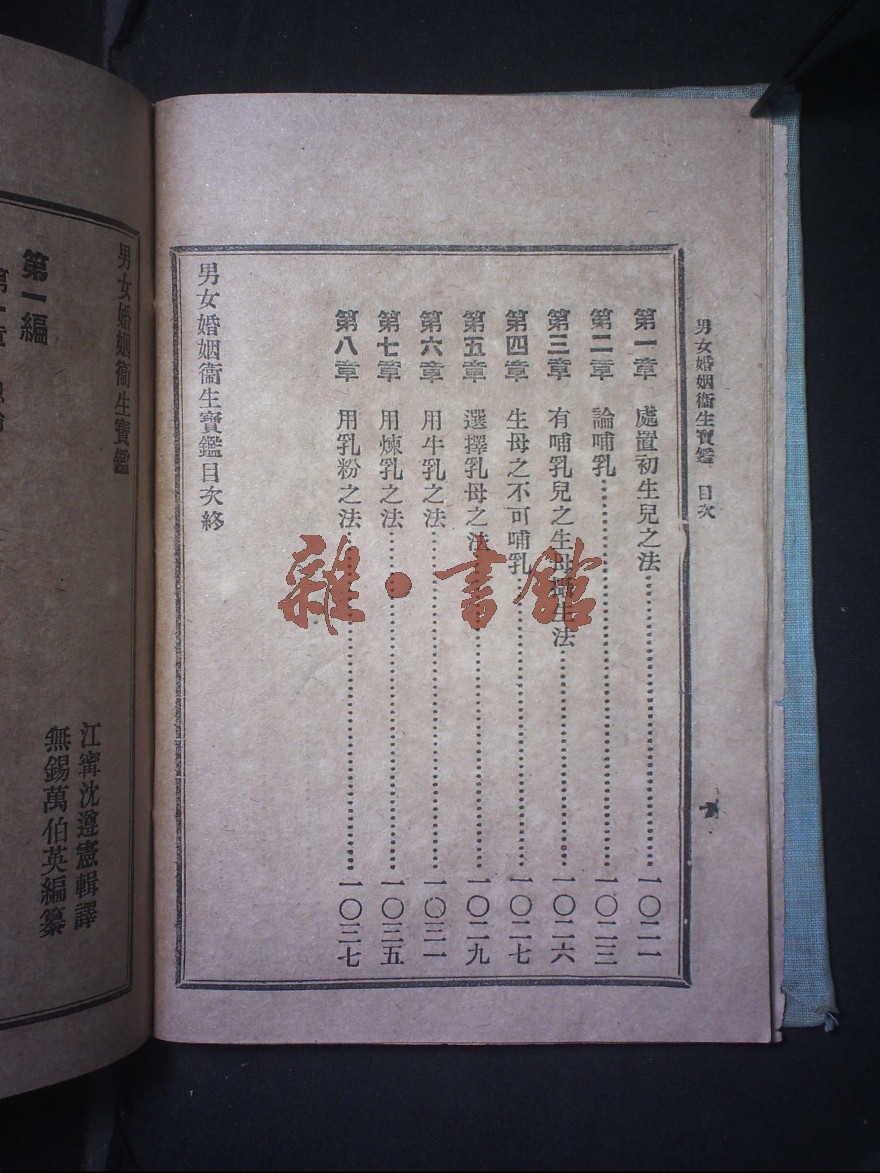 男女婚姻衞生寶鑑　目次
第一章　處置初生兒之法…………一〇二一
第二章　論哺乳…………一〇二三
第三章　有哺乳兒之生母攝生法…………一〇二六
第四章　生母之不可哺乳…………一〇二七
第五章　選擇乳母之法…………一〇二九
第六章　用牛乳之法…………一〇三一
第七章　用煉乳之法…………一〇三五
第八章　用乳粉之法…………一〇三七
男女婚姻衞生寶鑑目次終
雜·書館
男女婚姻衞生寶鑑
江寗沈遵憲輯譯
無錫萬伯英編纂
第一編
第一章